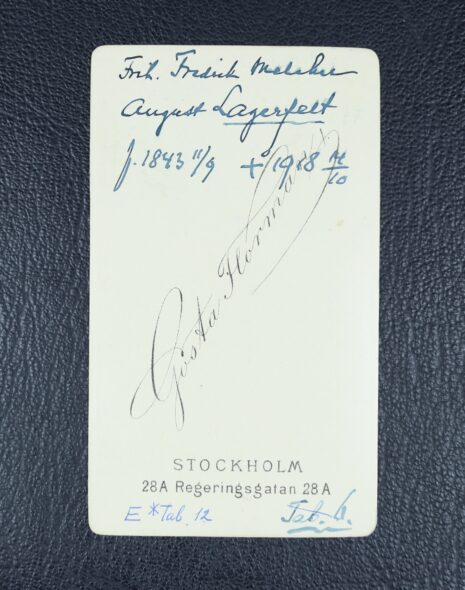 Frh. Fredrik Melcher
August Lagerfelt
f. 1843 11/9 + 1918 14/10
Gösta Florman
STOCKHOLM
28A Regeringsgatan 28A
E * Tab. 12